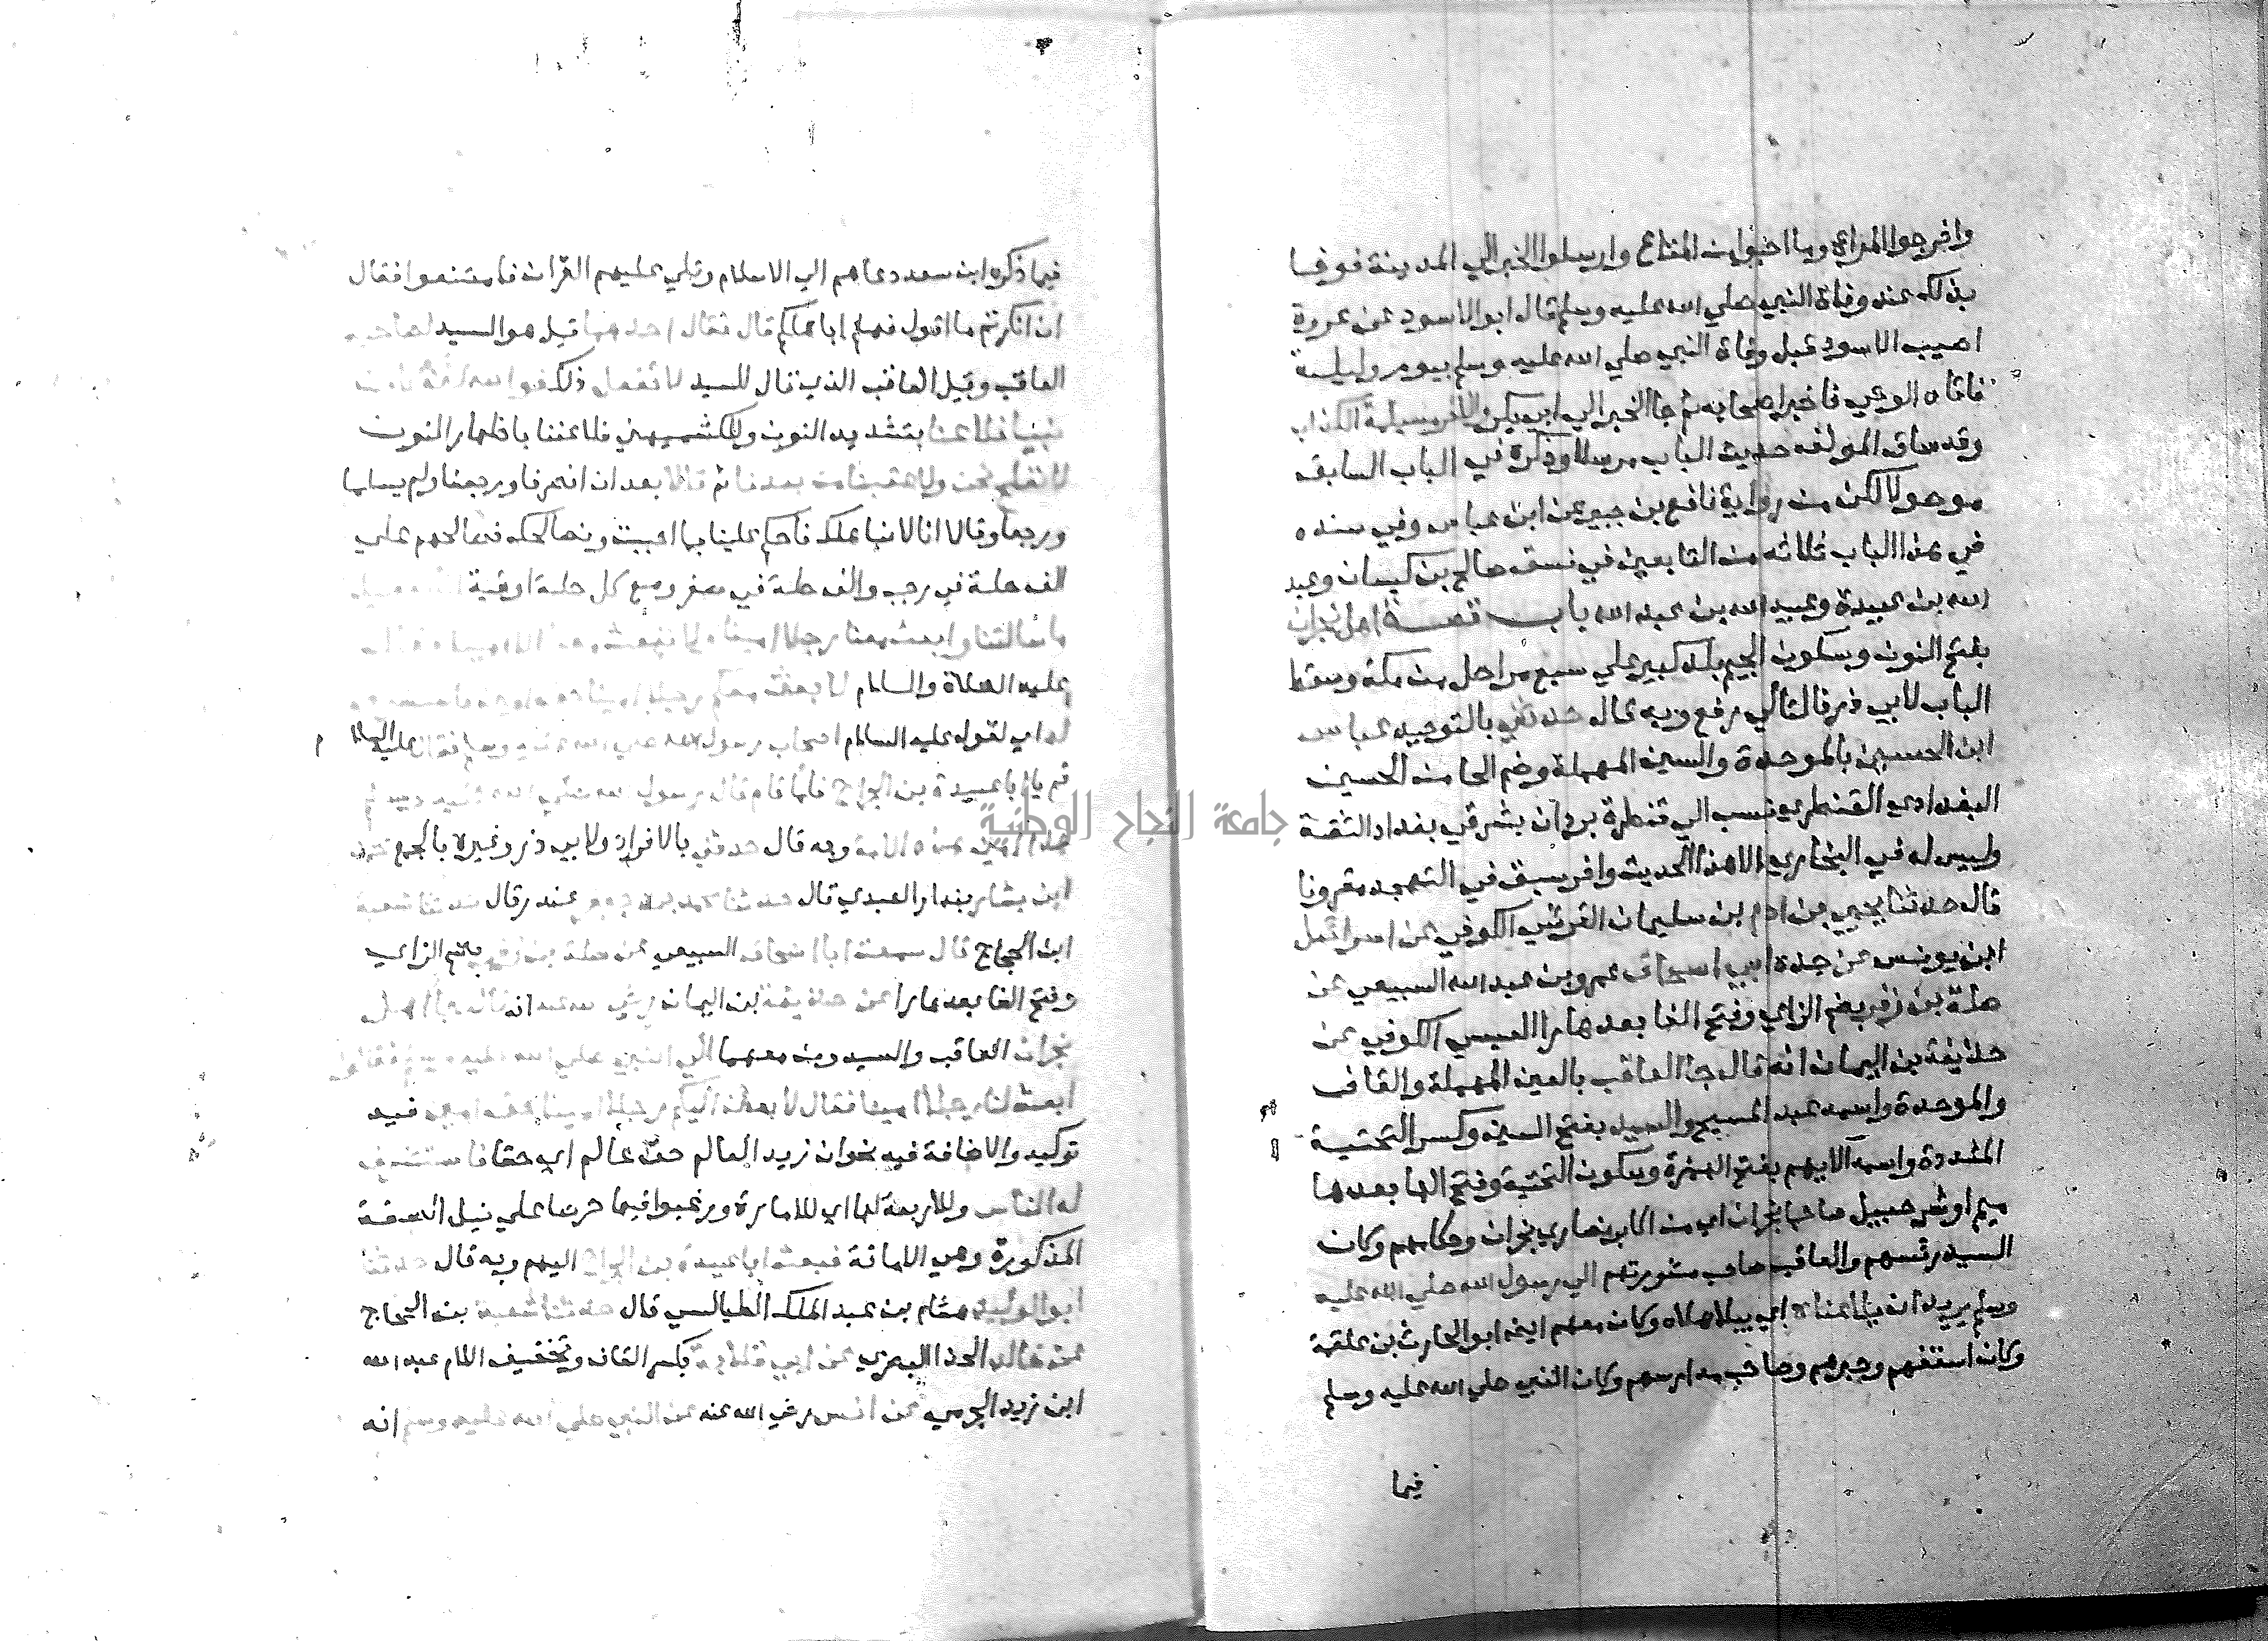 واخرجوا المراة وما احبوا من المتاع وارسلوا الخبر الي المدينة فوفا
بذلك عند وفاة النبي صلي الله عليه وسلم قال ابو الاسود عن عروة
اصيب الاسود قبل وفاة النبي صلي الله عليه وسلم بيوم وليلة
فاتاه الوحي فاخبر اصحابه ثم جا الخبر الي ابي بكر
وقد ساق المولف حديث الباب مرسلا وذكره في الباب السابق
موصولا لكن من رواية نافع بن جبير عن ابن عباس وفي سنده
في هذا الباب ثلاثه من التابعين في نسق صالح بن كيسان وعبد
الله بن عبيدة وعبيد الله بن عبد الله باب قصة اهل نجران
بفتح النون وسكون الجيم بلد كبير علي سبع مراحل من مكة وسقط
الباب لابي ذر فالتالي رفع وبه قال حدثني بالتوحيد عباس
ابن الحسين بالموحدة والسين المهملة وضم الحا من الحسين
البغدادي القنطري نسب الي قنطرة بردان بشرقي بغداد الثقة
وليس له في البخاري الا هذا الحديث واخر سبق في التهجد مقرونا
قال حدثنا يحيي بن ادم بن سليمان القرشي الكوفي عن اسرائيل
ابن يونس عن جده ابي اسحاق عمرو بن عبد الله السبيعي عن
صلة بن زفر بضم الزاي وفتح الفا بعدها را العبسي الكوفي عن
حذيفة بن اليمان انه قال جا العاقب بالعين المهملة والقاف
والموحدة واسمه عبد المسيح والسيد بفتح السين وكسر التحتية
المشددة واسمه الايهم بفتح الهمزة وسكون التحتية وفتح الها بعدها
ميم او شرحبيل صاحبا نجران اي من اكابر نصاري نجران وحكامهم وكان
السيد رئسهم والعاقب صاحب مشورتهم الي رسول الله صلي الله عليه
وسلم يريدان يلاعناه اي يباهلاه وكان معهم ايضا ابو الحارث بن علقمة
وكان اسقفهم وحبرهم وصاحب مدارسهم وكان النبي صلي الله عليه وسلم
فيما
فيما ذكره ابن سعد دعاهم الي الاسلام وتلي عليهم القران فامتنعوا فقال
ان انكرتم ما اقول فهلم اباهلكم قال فقال احدهما قيل هو السيد لصاحبه
العاقب وقيل العاقب الذي قال للسيد لا تفعل ذلك فوالله
نبيا فلاعنا بتشديد النون وللكشميهني فلاعننا باظهار النون
لا نفلح نحن ولا عقبنا من بعدنا ثم قالا بعد ان انصرفا ورجعا ولم يسلما
ورجعا وقالا انا لا نباهلك فاحكم علينا بما احببت ونصالحك فصالحهم علي
الف حلة في رجب والف حلة في صفر ومع كل حلة اوقية
ما سالتنا وابعث معنا رجلا امينا ولا تبعث معنا الا امينا
عليه الصلاة والسلام لابعثن معكم رجلا امينا
لها اي لقوله عليه السلام اصحاب رسول الله صلي الله عليه وسلم فقال عليه السلام
قم يا ابا عبيدة بن الجراح فلما قام قال رسول الله صلي الله عليه وسلم
هذا امين هذه الامة وبه قال حدثني بالافراد ولابي ذر وغيره بالجمع محمد
ابن بشار بندار العبدي قال حدثنا محمد بن جعفر غندر قال حدثنا شعبة
ابن الحجاج قال سمعت ابا اسحاق السبيعي عن صلة بن زفر بضم الزاي
وفتح الفا بعدها را عن حذيفة بن اليمان رضي الله عنه انه قال جا اهل
نجران العاقب والسيد ومن معهما الي النبي صلي الله عليه وسلم فقالوا
ابعث لنا رجلا امينا فقال لابعثن اليكم رجلا امينا حق امين فيه
توكيد والاضافة فيه نحو ان زيد العالم حق عالم اي حقا فاستشرف
له الناس وللاربعة لها اي للامارة ورغبوا فيها حرصا علي نيل الصفة
المذكورة وهي الامانة فبعث ابا عبيدة بن الجراح اليهم وبه قال حدثنا
ابو الوليد هشام بن عبد الملك الطيالسي قال حدثنا شعبة بن الحجاج
عن خالد الحذا البصري عن ابي قلابة بكسر القاف وتخفيف اللام عبد الله
ابن زيد الجرمي عن انس رضي الله عنه عن النبي صلي الله عليه وسلم انه
جامعة النجاح الوطنية